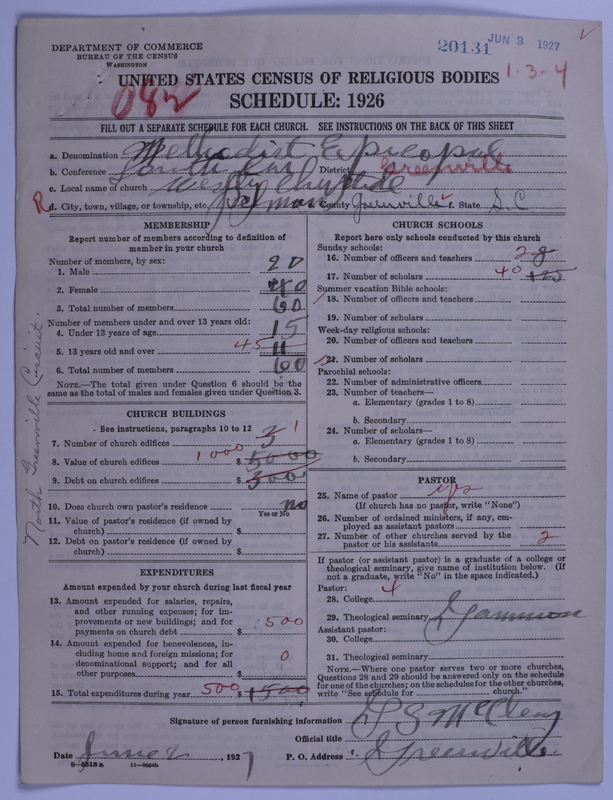 DEPARTMENT OF COMMERCE
BUREAU OF THE CENSUS
WASHINGTON
20131 JUN 3 1927
1-3-4
082
UNITED STATES CENSUS OF RELIGIOUS BODIES
SCHEDULE: 1926
FILL OUT A SEPARATE SCHEDULE FOR EACH CHURCH. SEE INSTRUCTIONS ON THE BACK OF THIS SHEET
a. Denomination Methodist Episcopal
b. Conference South Car District Greenville
c. Local name of church Wesly
R d. City, town, village, or township, etc. County Greenville f. State S.C
MEMBERSHIP
Report number of members according to definition of member in your church
Number of members, by sex:
1. Male 20
2. Female 40
3. Total number of members 60
Number of members under and over 13 years old:
4. Under 13 years of age 15
5. 13 years old and over 45 11
6. Total number of members 60
NOTE.—The total given under Question 6 should be the same as the total of males and females given under Question 3.
CHURCH BUILDINGS
See instructions, paragraphs 10 to 12
7. Number of church edifices 3 1
8. Value of church edifices 1000 $ 5000
9. Debt on church edifices $ 300
10. Does church own pastor's residence no
Yes or No
11. Value of pastor's residence (if owned by church) $
12. Debt on pastor's residence (if owned by church) $
EXPENDITURES
Amount expended by your church during last fiscal year
13. Amount expended for salaries, repairs, and other running expenses; for improvements or new buildings; and for payments on church debt $ 500
14. Amount expended for benevolences, including home and foreign missions; for denominational support; and for all other purposes $ 0
15. Total expenditures during year 500 $ 1500
North Greenville Circuit.
CHURCH SCHOOLS
Report here only schools conducted by this church
Sunday schools:
16. Number of officers and teachers 2
17. Number of scholars 40
Summer vacation Bible schools:
18. Number of officers and teachers
19. Number of scholars
Week-day religious schools:
20. Number of officers and teachers
21. Number of scholars
Parochial schools:
22. Number of administrative officers
23. Number of teachers—
a. Elementary (grades 1 to 8)
b. Secondary
24. Number of scholars—
a. Elementary (grades 1 to 8)
b. Secondary
PASTOR
25. Name of pastor yes
(If church has no pastor, write "None")
26. Number of ordained ministers, if any, employed as assistant pastors
27. Number of other churches served by the pastor or his assistants 2
If pastor (or assistant pastor) is a graduate of a college or theological seminary, give name of institution below. (If not a graduate, write "No" in the space indicated.)
Pastor: 4
28. College
29. Theological seminary Gammon
Assistant pastor:
30. College
31. Theological seminary
NOTE.—Where one pastor serves two or more churches, Questions 28 and 29 should be answered only on the schedule for one of the churches; on the schedules for the other churches, write "See schedule for church."
Signature of person furnishing information
Official title
Date June 2, 1927 P. O. Address Greenville
8—5518a 11—9654b